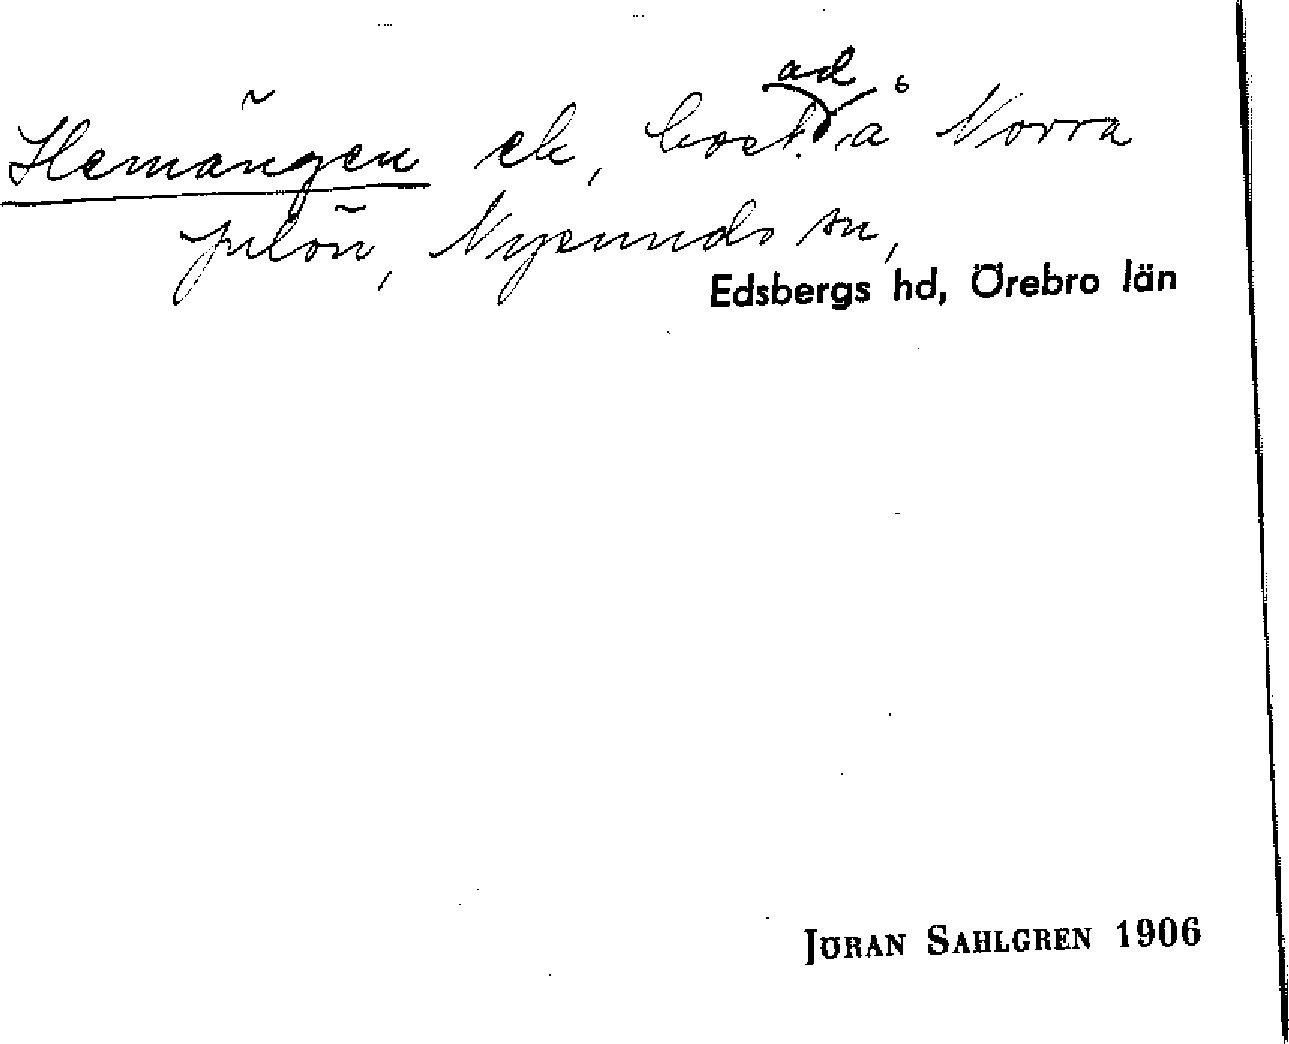 Hemängen ek, bostad å Norra
Julön, Nysunds sn,
Edsbergs hd, Örebro län
JÖRAN SAHLGREN 1906